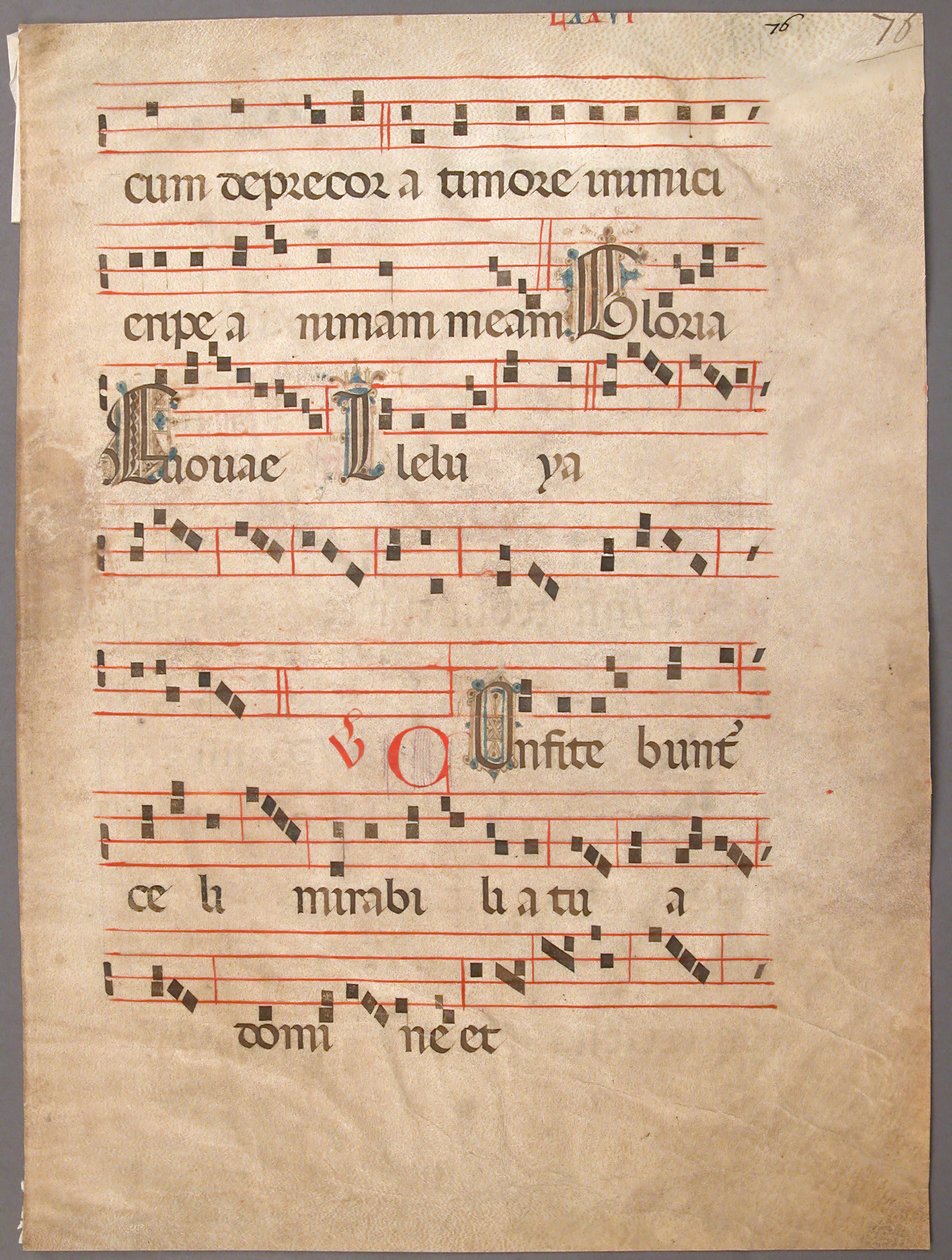 LXXVI 76 76
cum deprecor a timore inimici
eripe a nimam meam Gloria
Euouae Alleluya
℣ C Onfite bunt᷒
ce li mirabi li a tu a
domi ne et